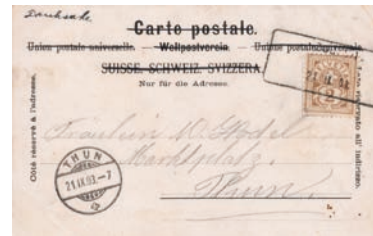 Drucksache.
Carte postale.
Union postale universelle. — Weltpostverein. — Unione postale universale.
SUISSE. SCHWEIZ. SVIZZERA.
Nur für die Adresse.
Côté réservé à l'adresse.
Lato riservato all' indirizzo.
HELVETIA
2
21.IX.03
Fräulein
Marktplatz.
Thun.
THUN
21.IX.03.–7